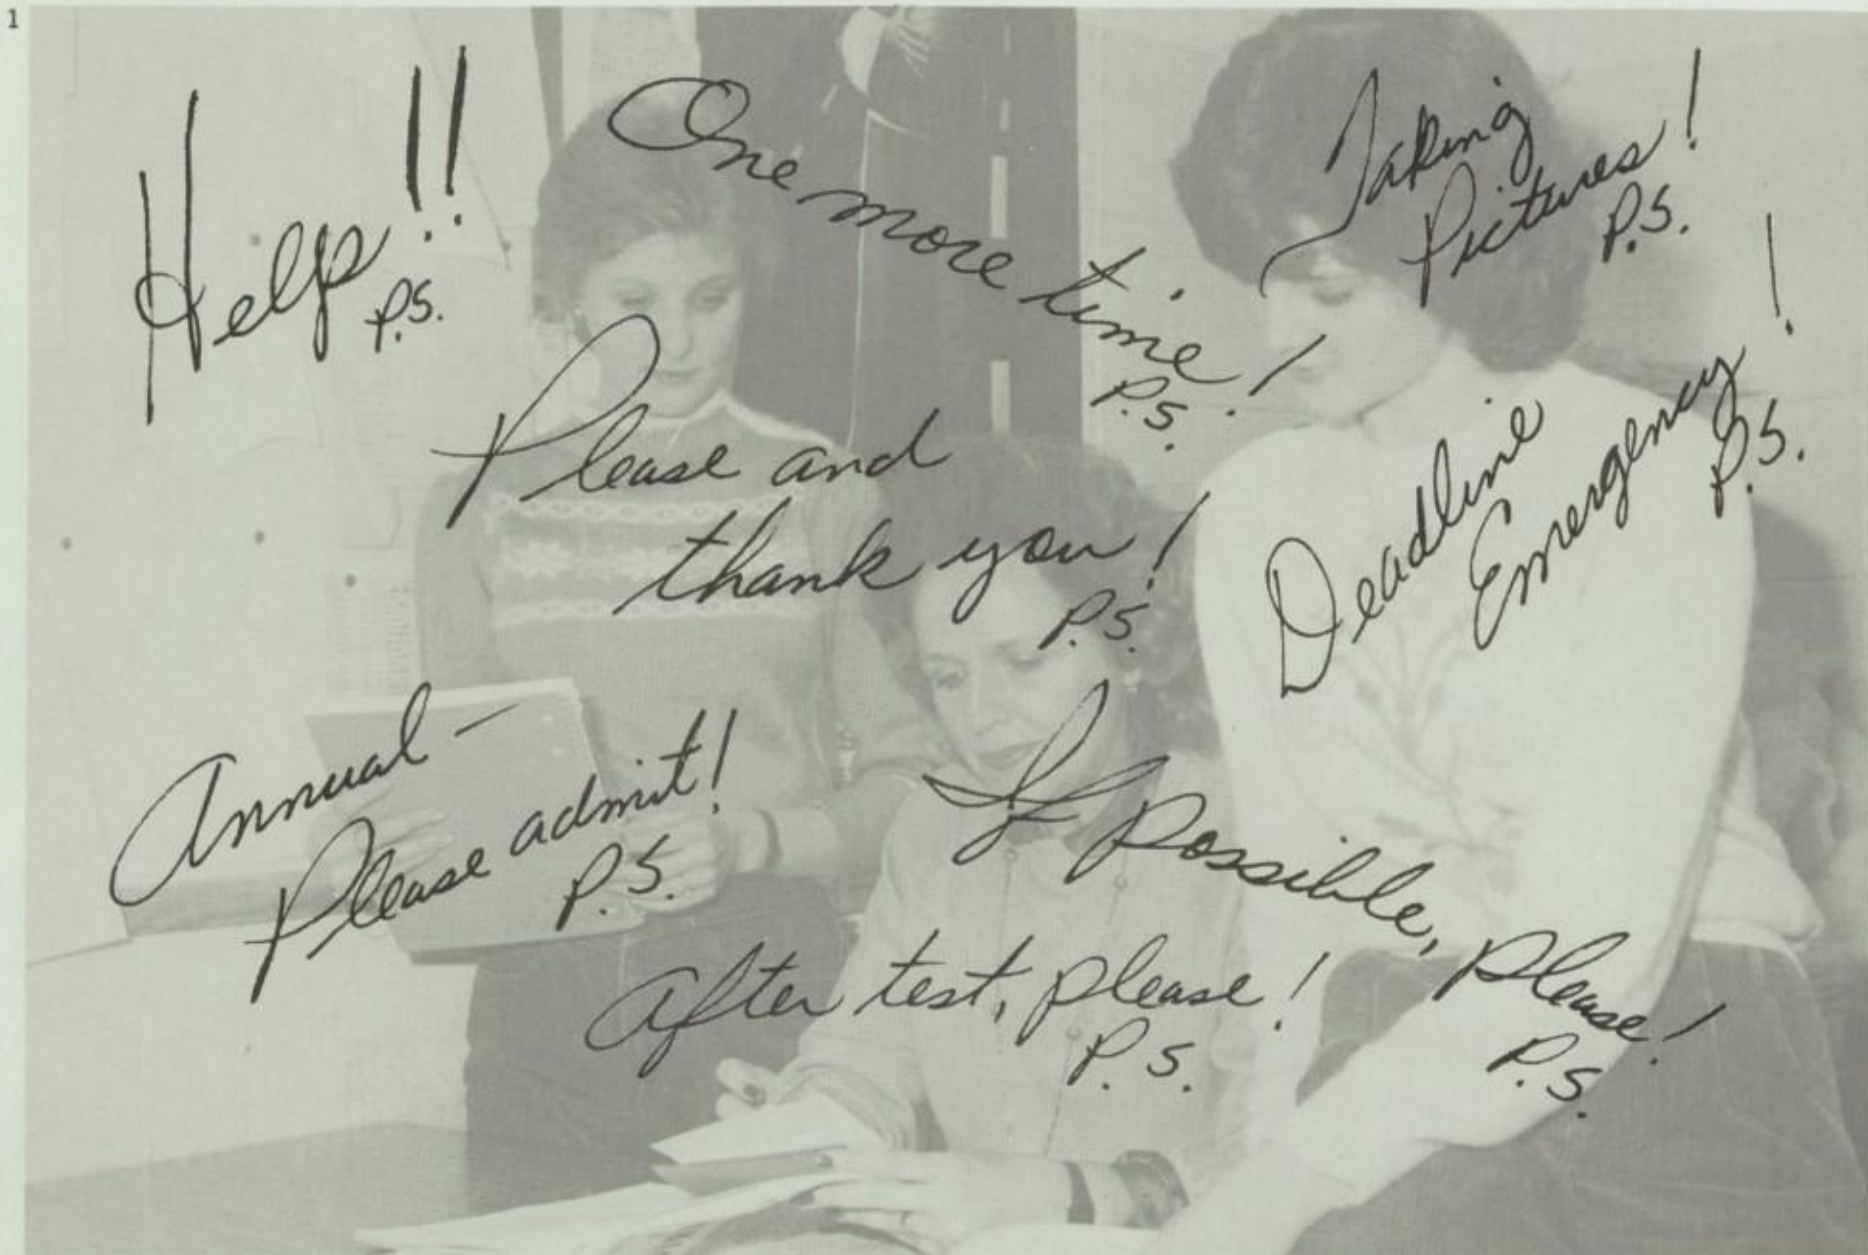 1
Help!!
P.S.
One more time!
P.S.
Taking
Pictures!
P.S.
Please and
thank you!
P.S.
Deadline
Emergency!
P.S.
Annual -
Please admit!
P.S.
If possible, please!
P.S.
After test, please!
P.S.